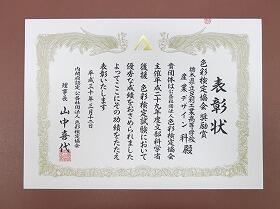 表彰状
色彩検定協会 奨励賞
栃木県立足利工業高等学校
産業デザイン科 殿
貴団体は公益社団法人色彩検定協会
主催平成二十九年度文部科学省
後援 色彩検定試験において
優秀な成績をおさめられました
よってここにその功績をたたえ
表彰いたします
平成三十年三月十三日
内閣府認定 公益社団法人色彩検定協会
理事長 山中喜代